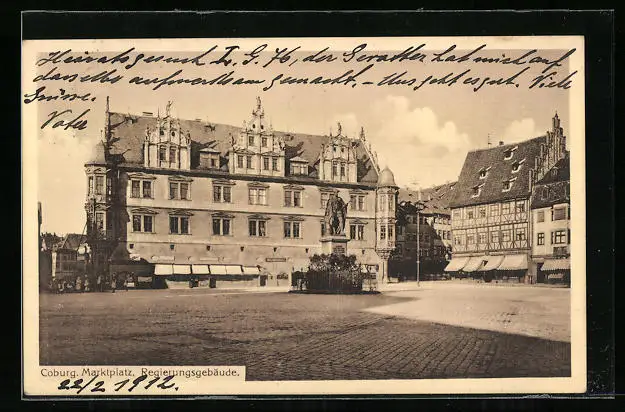 Heiratsgesuch I. G. 76, der Seratker hat mich auf
dasselbe aufmerksam gemacht. - Uns geht es gut. Viel
Grüsse.
Vater
Coburg. Marktplatz, Regierungsgebäude.
22/2 1912.